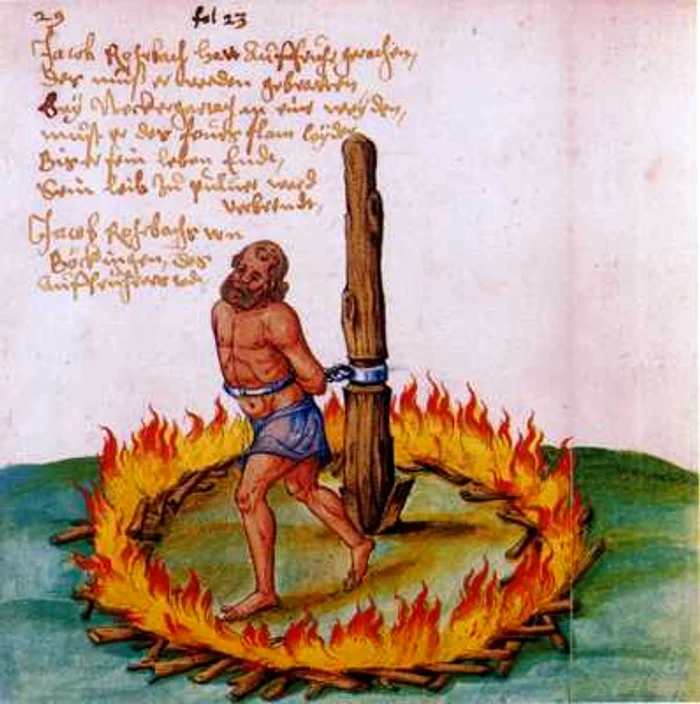 29 fol 23
Jacob Rohrbach hatt Auffruhr gerachen,
Des must er werden gebratten
Bey Neckergartach an eine weyden,
must er des feurs flam leyden
Bis er sein leben Endt,
Sein leib zu puluer ward
verbrendt,
Jacob Rohrbachs von
Böckingen, des
Auffrührers tod